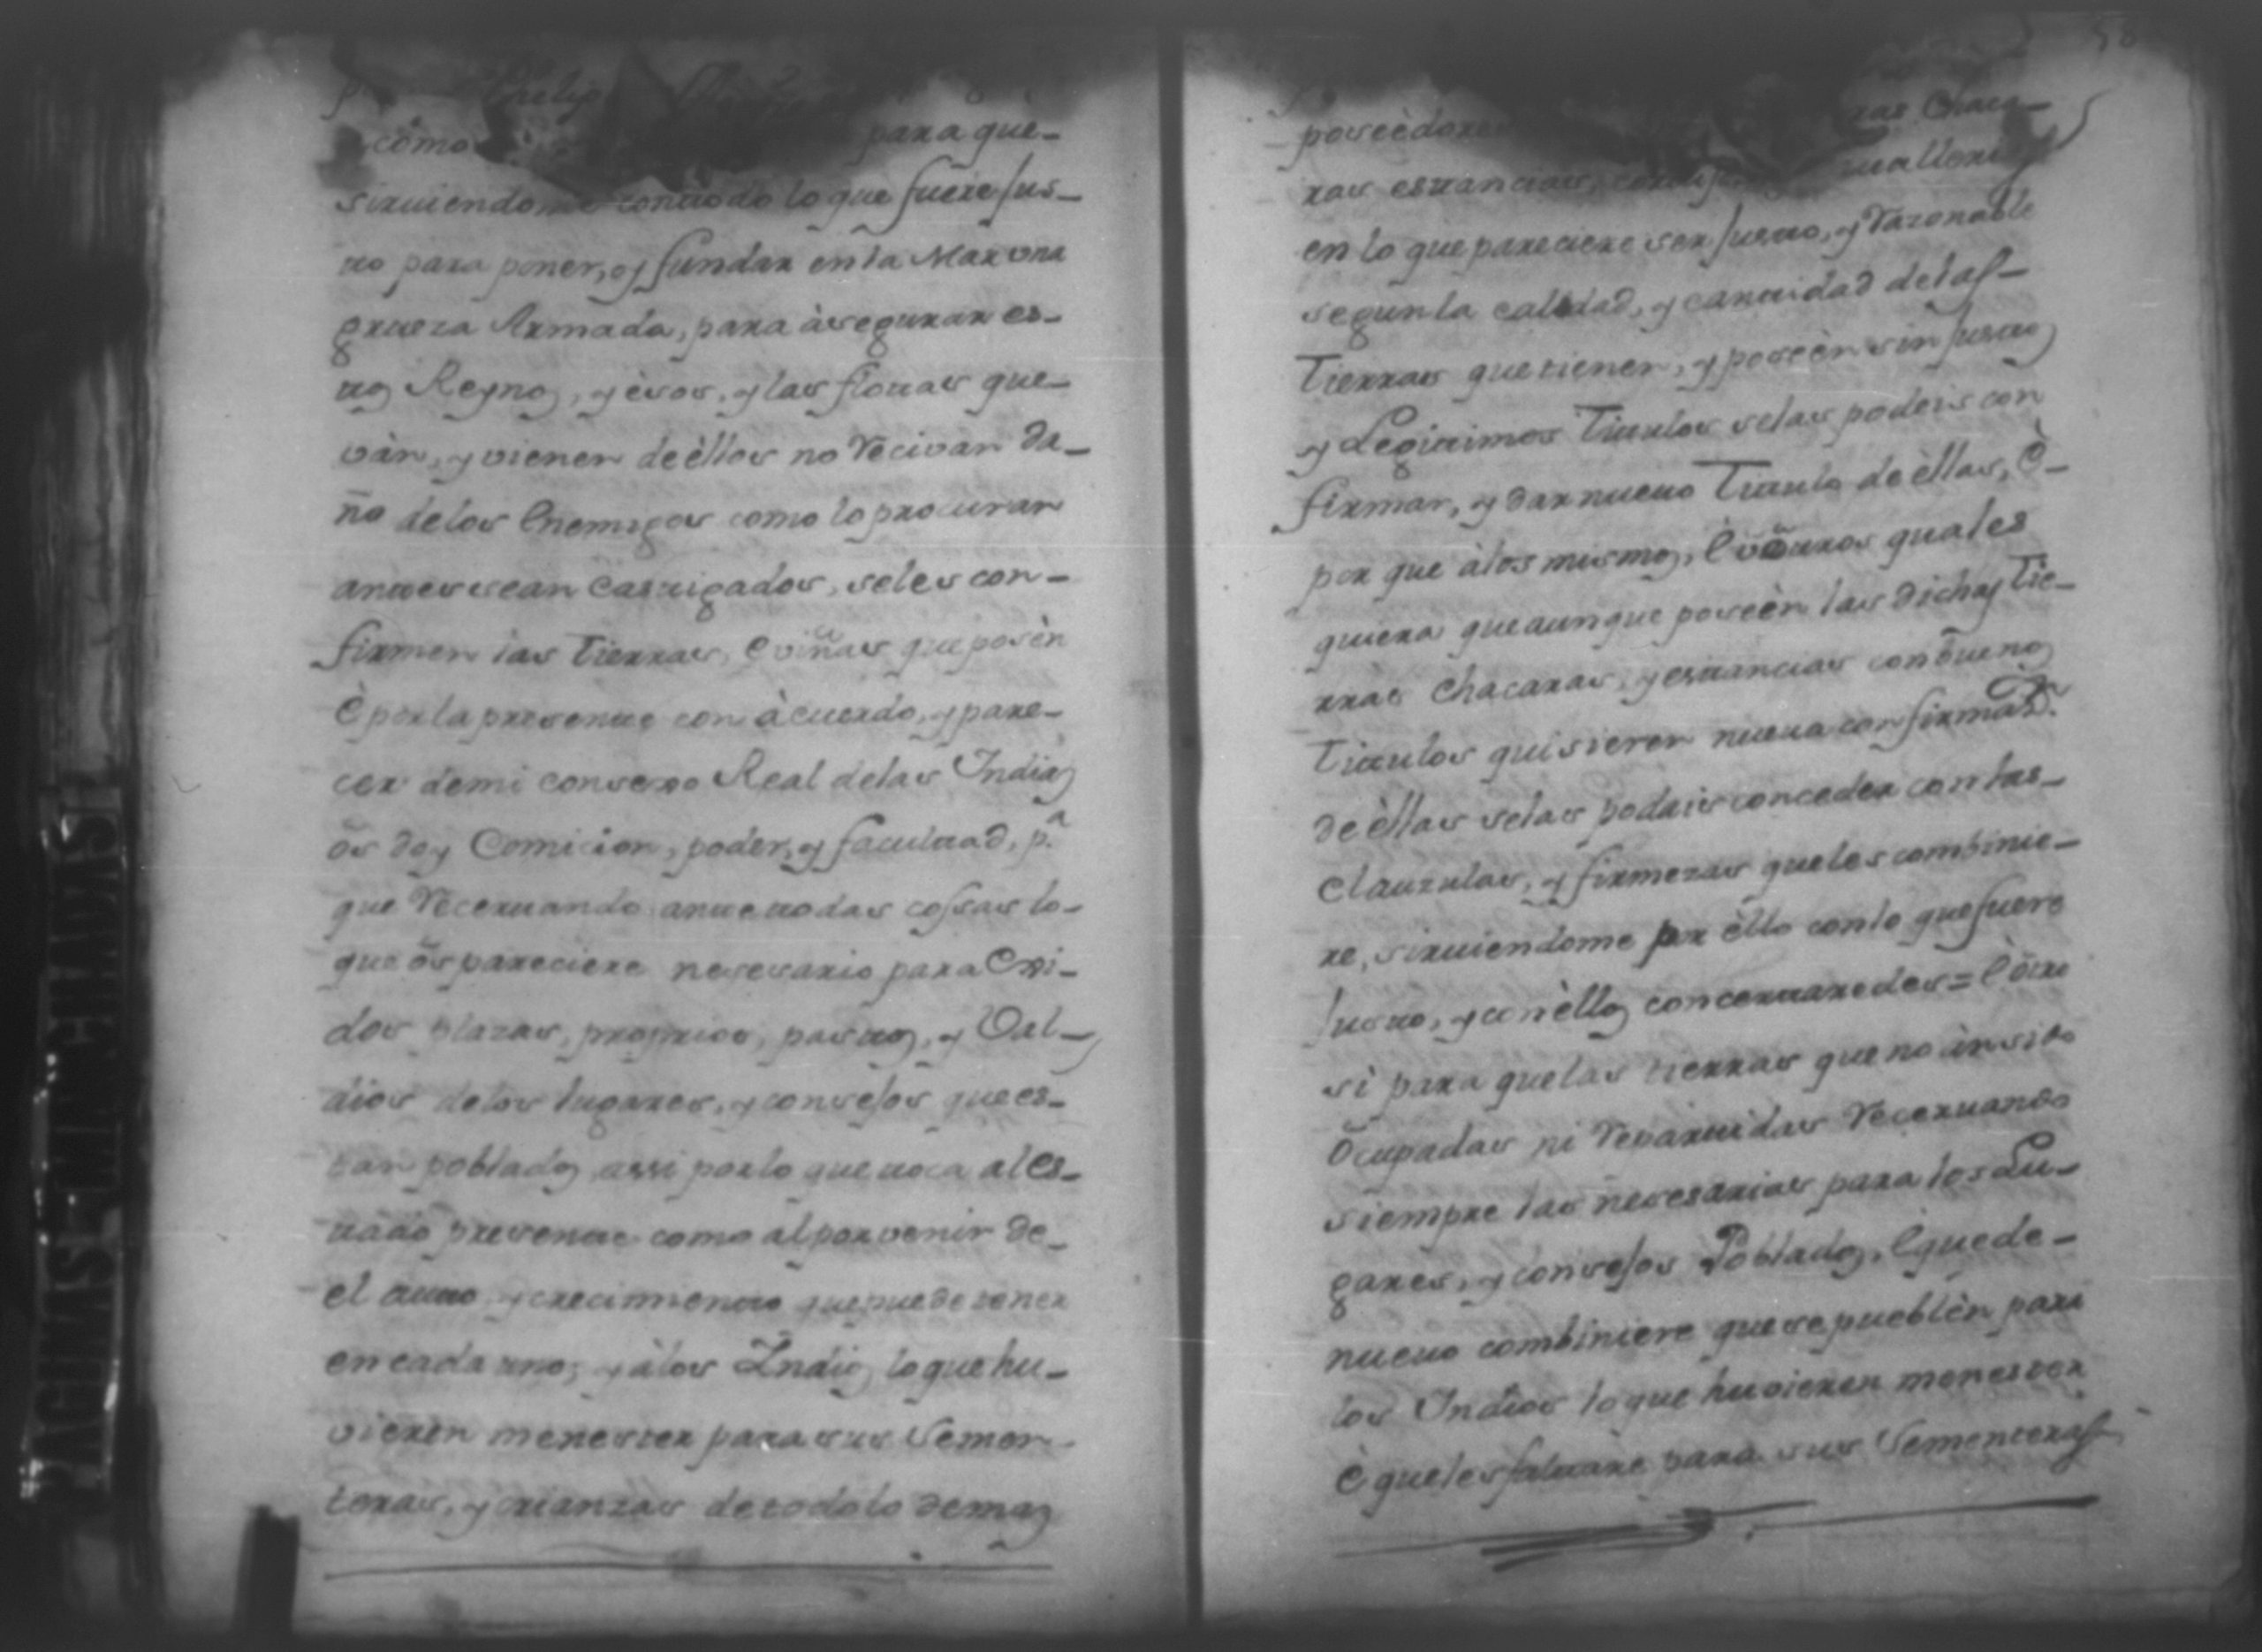 como para que-
sirviendome con todo lo que fuere jus-
to para poner, y fundar en la Mar una
grueza Armada, para àsegurar es-
tos Reynos, y èsos, y las flotas que-
vàn, y vienen de èllos no recivan da-
ño de los Enemigos como lo procuran
antes sean Castigados, se les con-
firmen las Tierras, è viñas que posèn
è por la presente con àcuerdo, y pare-
cer de mi consexo Real de las Indias
ôs doy Comicion, poder, y facultad, p.ª
que recervando ante todas cossas lo-
que ôs pareciere nesesario para Exi-
dos plazas, proprios, pastos, y Val-
dios de los lugares, y consejos que es-
tan poblados assi por lo que toca al es-
tado presente como al por venir de-
el auto y crecimiento que puede tener
en cada uno; y à los Indios lo que hu-
vieren menester para sus Semen-
teras, y crianzas de todo lo demas
58
poseèdores ras Chaca-
ras estancias,
en lo que pareciere ser justo, y razonable
segun la calidad, y cantidad de las-
Tierras que tienen, y poseèn sin justos
y Legitimos Titulos selas podeis con
firmar, y dar nuevo Titulo de èllas, è-
por que àlos mismos, è ôtros quales
quiera que aunque poseèn las dichas Tie-
rras Chacaras, y estancias con buenos
Titulos quisieren nueva confirmaz.ⁿ
de èllas selas podais conceder con las-
Clauzulas, y firmezas que les combinie-
re, sirviendome por èllo con lo que fuere
justo, y con èllos concertaredes = è ôtro
si para que las tierras que no àn sido
ôcupadas ni repartidas recervando
siempre las nesesarias para los Lu-
gares, y consejos Poblados, è que de-
nuevo combiniere que se pueblèn para
los Indios lo que huvieren menester
è que les faltare para sus Sementeras